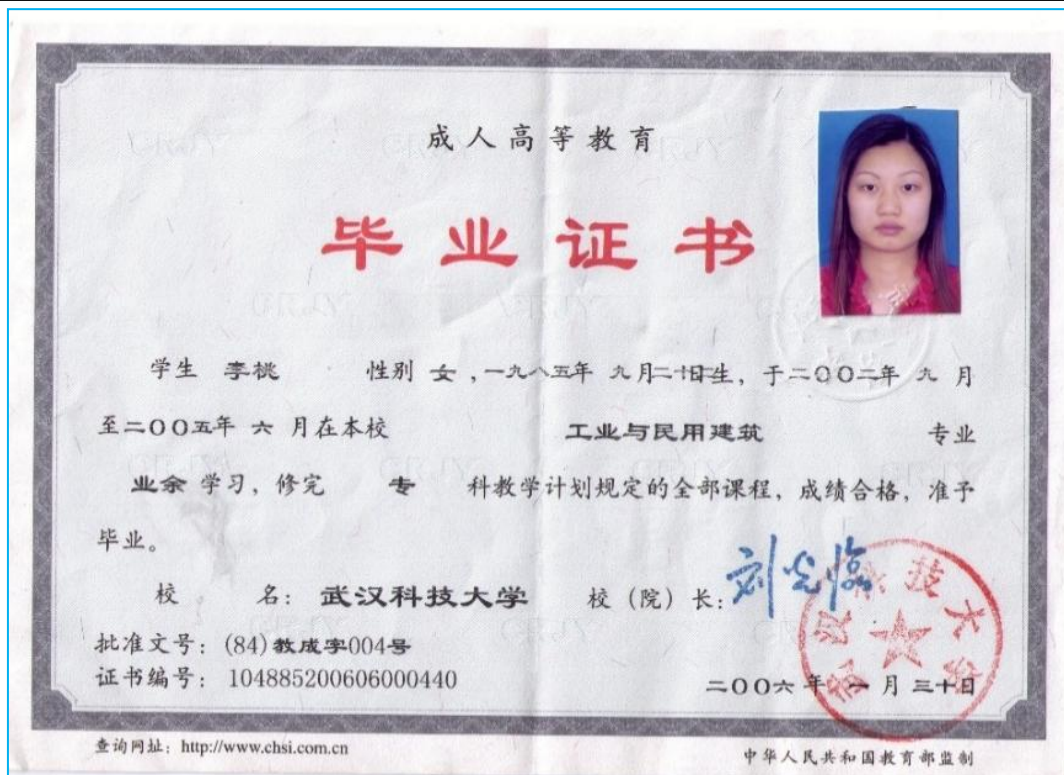 成人高等教育
毕业证书
学生 李桃 性别 女，一九八五年 九月二十日生，于二〇〇二年 九 月
至二〇〇五年 六 月在本校 工业与民用建筑 专业
业余 学习，修完 专 科教学计划规定的全部课程，成绩合格，准予
毕业。
校 名：武汉科技大学 校（院）长：刘光临
批准文号：(84)教成字004号
证书编号：104885200606000440
武汉科技大学
二〇〇六 年 一 月 三十日
查询网址：http://www.chsi.com.cn
中华人民共和国教育部监制